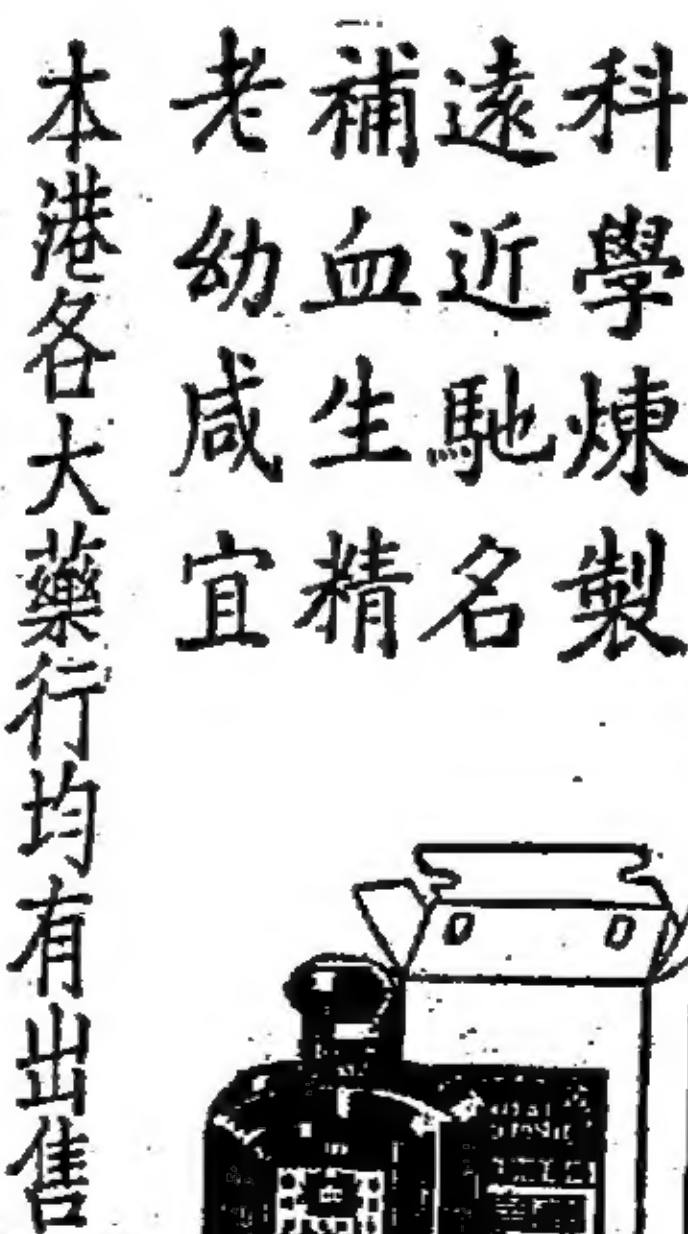 科學煉製
遠近馳名
補血生精
老幼咸宜
本港各大藥行均有出售